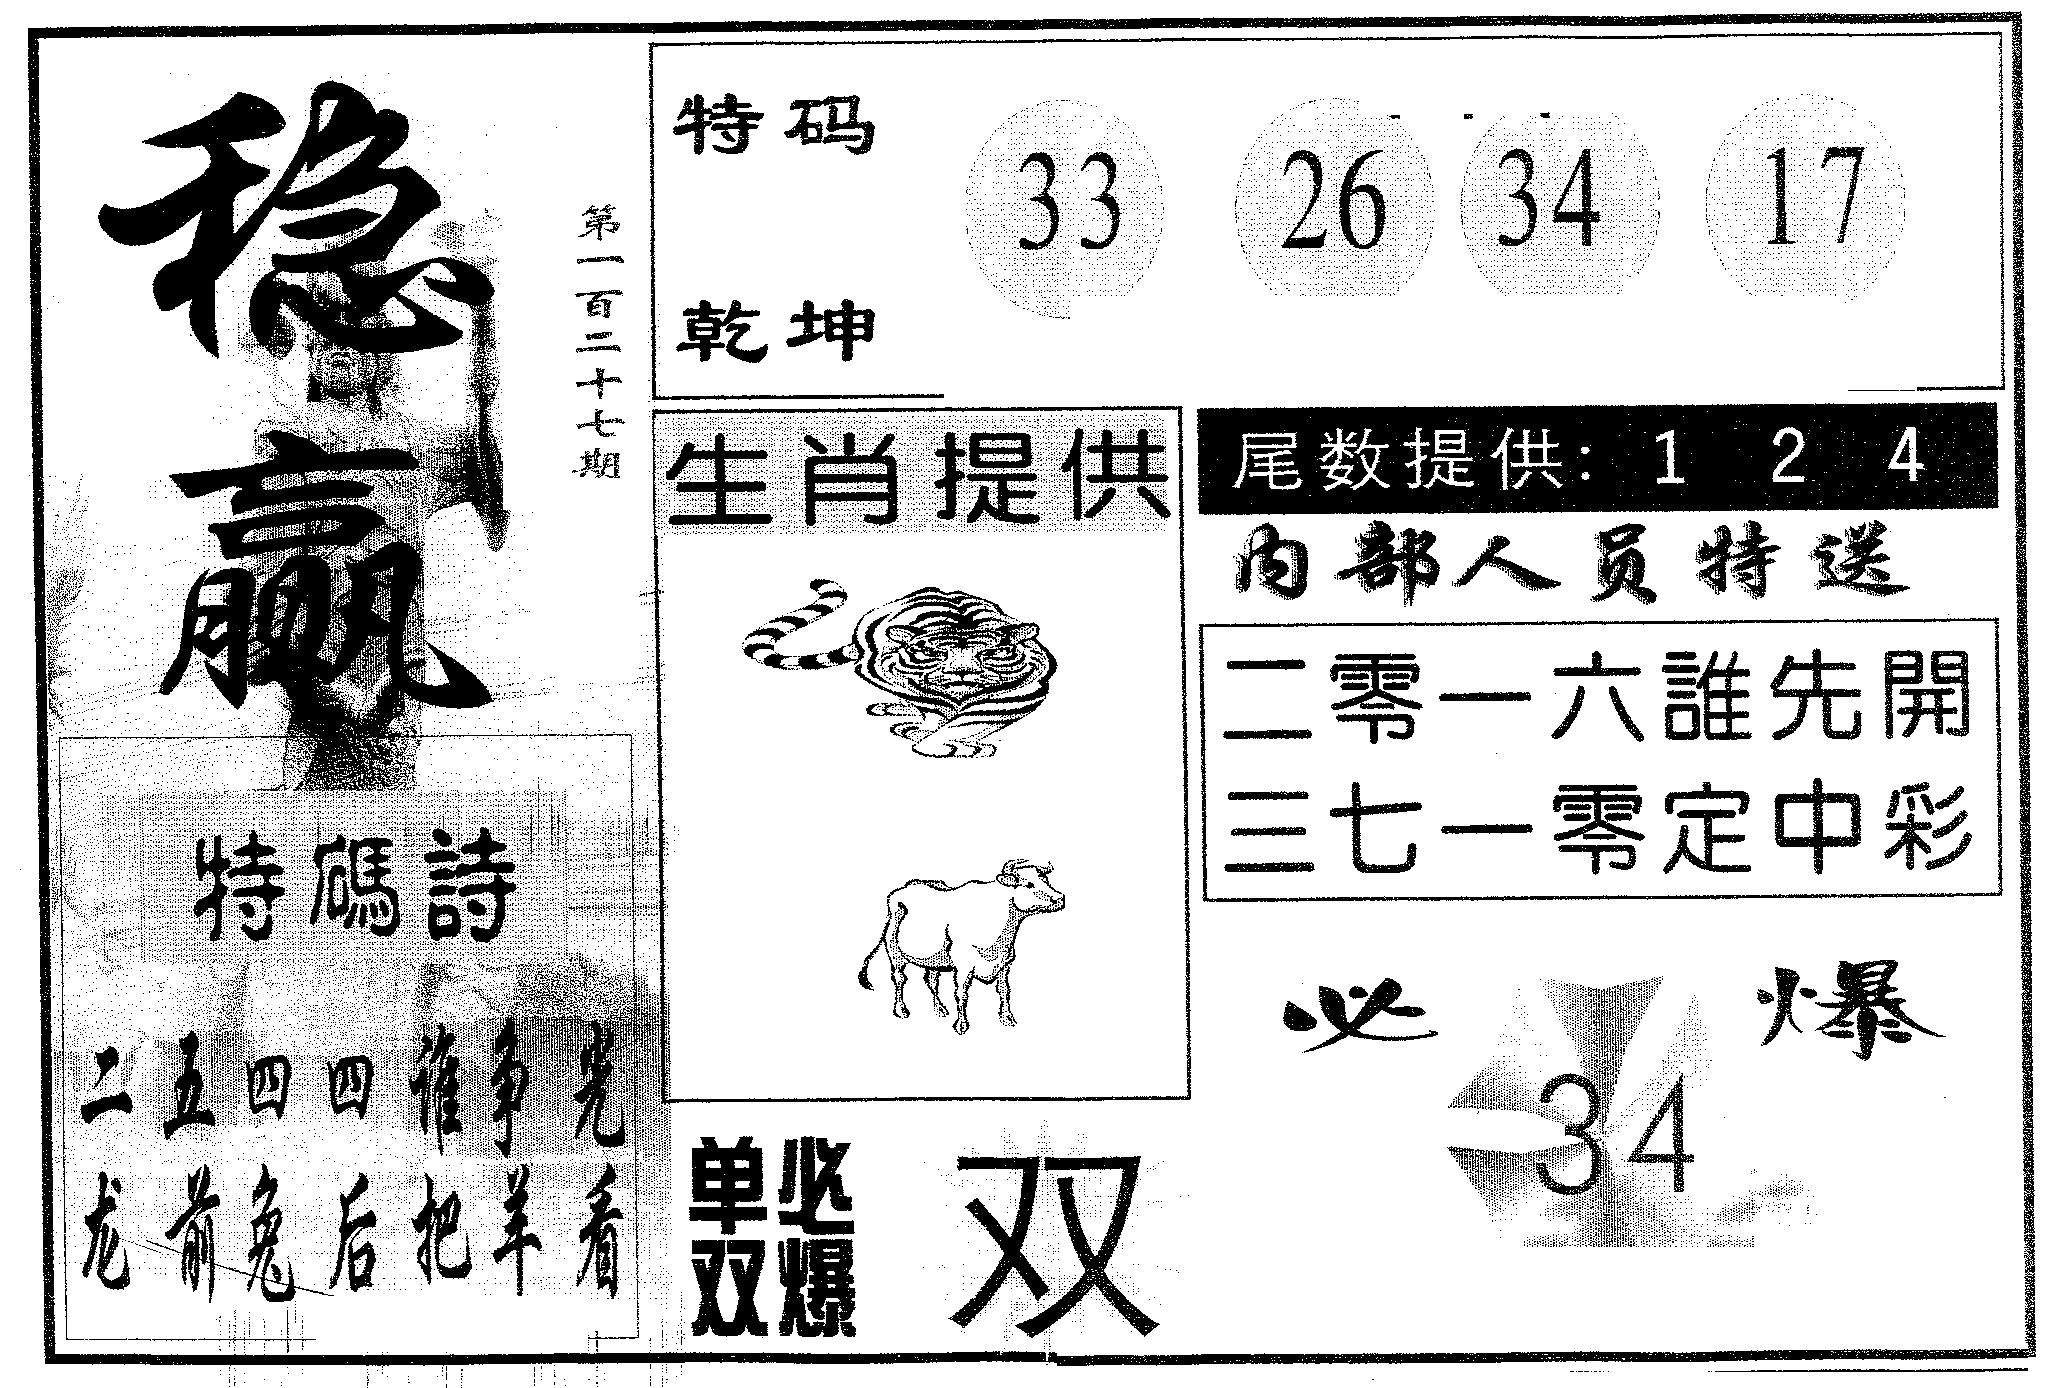 稳赢
第一百二十七期
特码
乾坤
33 26 34 17
生肖提供
尾数提供: 1 2 4
内部人员特送
二零一六誰先開
三七一零定中彩
特碼詩
二五四四谁争光
龙前兔后把羊看
单双
必爆
双
必爆
34